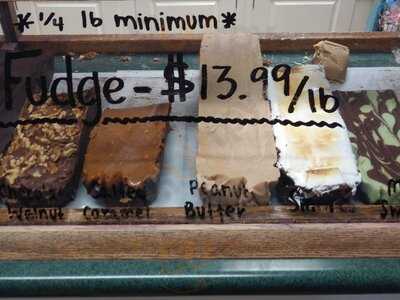 *1/4 lb minimum*
Fudge - $13.99/lb
Walnut
Caramel
Peanut
Butter